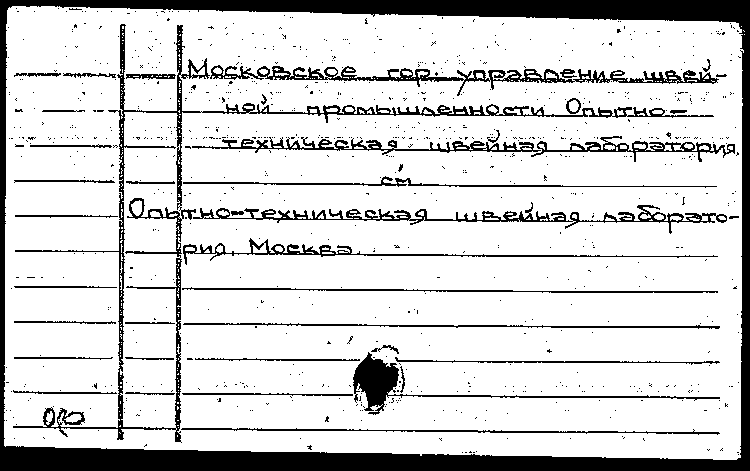 Московское гор. управление швей-
ной промышленности. Опытно-
техническая швейная лаборатория.
см.
Опытно-техническая швейная лаборато-
рия. Москва.